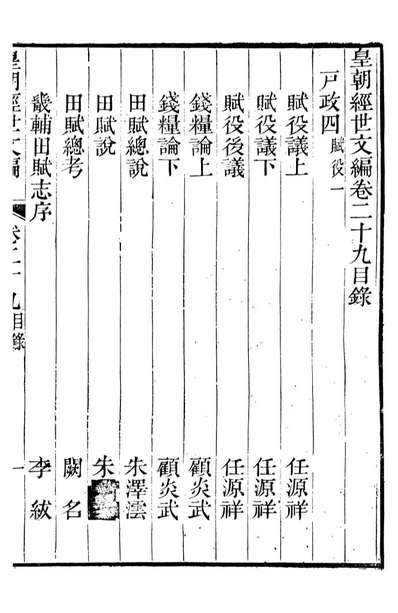 皇朝經世文編卷二十九目錄
戸政四賦役一
賦役議上 任源祥
賦役議下 任源祥
賦役後議 任源祥
錢糧論上 顧炎武
錢糧論下 顧炎武
田賦總說 朱澤澐
田賦說 朱
田賦總考 闕名
畿輔田賦志序 李紱
皇朝經世文編 卷二十九目錄 一